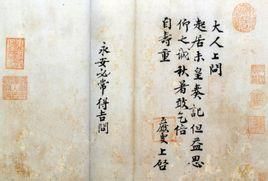 大人上問
起居未皇奏記但益思
仰之誠秋暑敢乞倍
自壽重
嚴叟上啓
永安必常得吉問